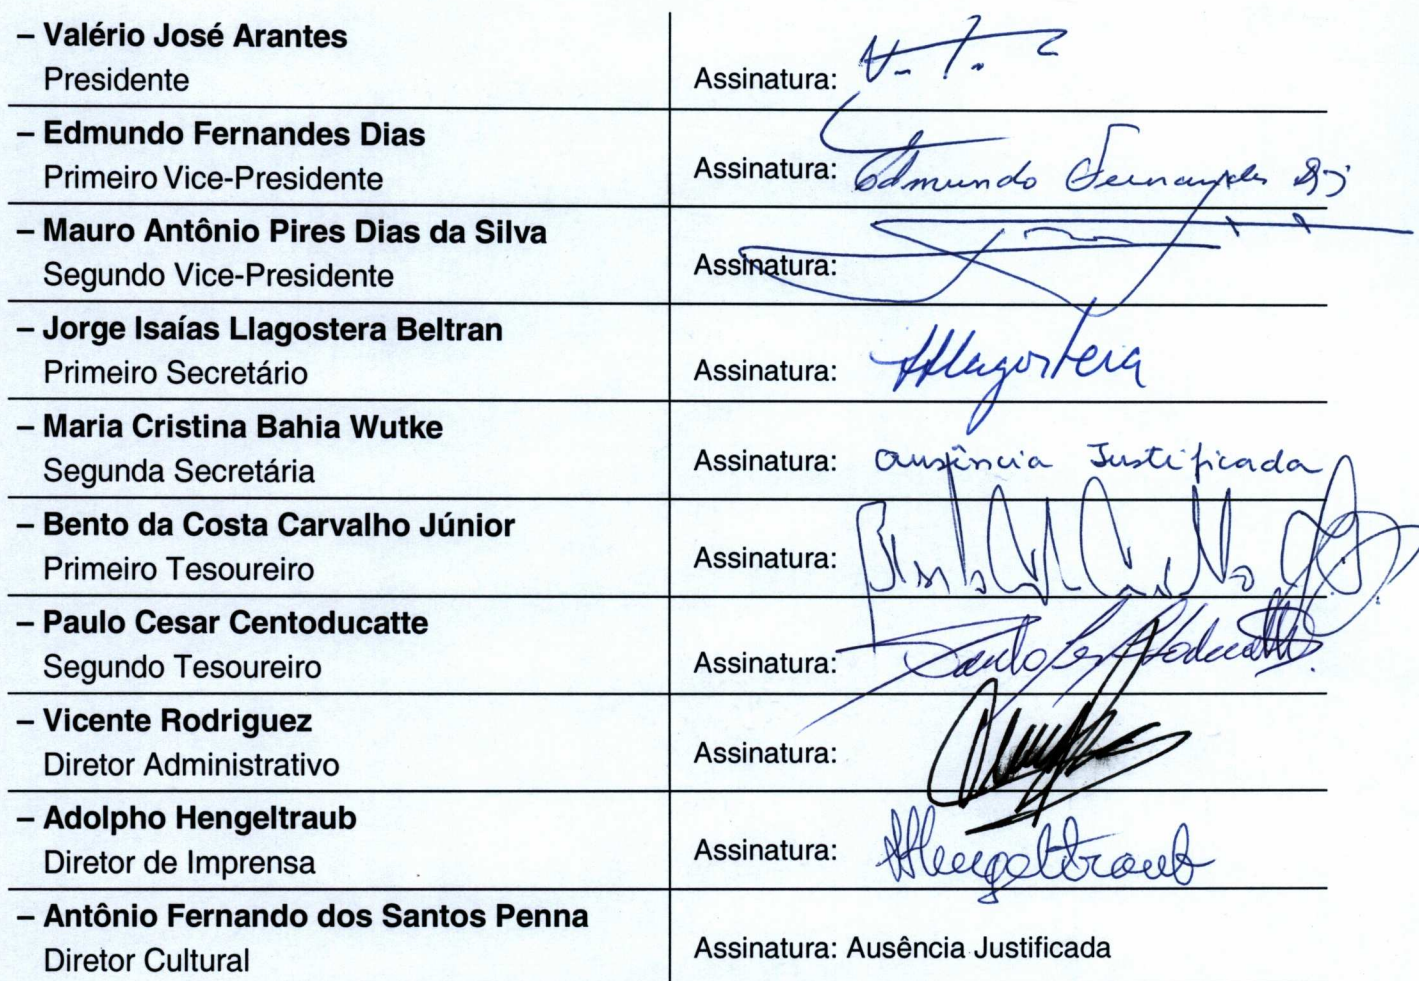 – Valério José Arantes
Presidente
Assinatura:
– Edmundo Fernandes Dias
Primeiro Vice-Presidente
Assinatura: Edmundo Fernandes
– Mauro Antônio Pires Dias da Silva
Segundo Vice-Presidente
Assinatura:
– Jorge Isaías Llagostera Beltran
Primeiro Secretário
Assinatura: Llagostera
– Maria Cristina Bahia Wutke
Segunda Secretária
Assinatura: Ausência Justificada
– Bento da Costa Carvalho Júnior
Primeiro Tesoureiro
Assinatura:
– Paulo Cesar Centoducatte
Segundo Tesoureiro
Assinatura: Paulo
– Vicente Rodriguez
Diretor Administrativo
Assinatura:
– Adolpho Hengeltraub
Diretor de Imprensa
Assinatura: AHengeltraub
– Antônio Fernando dos Santos Penna
Diretor Cultural
Assinatura: Ausência Justificada